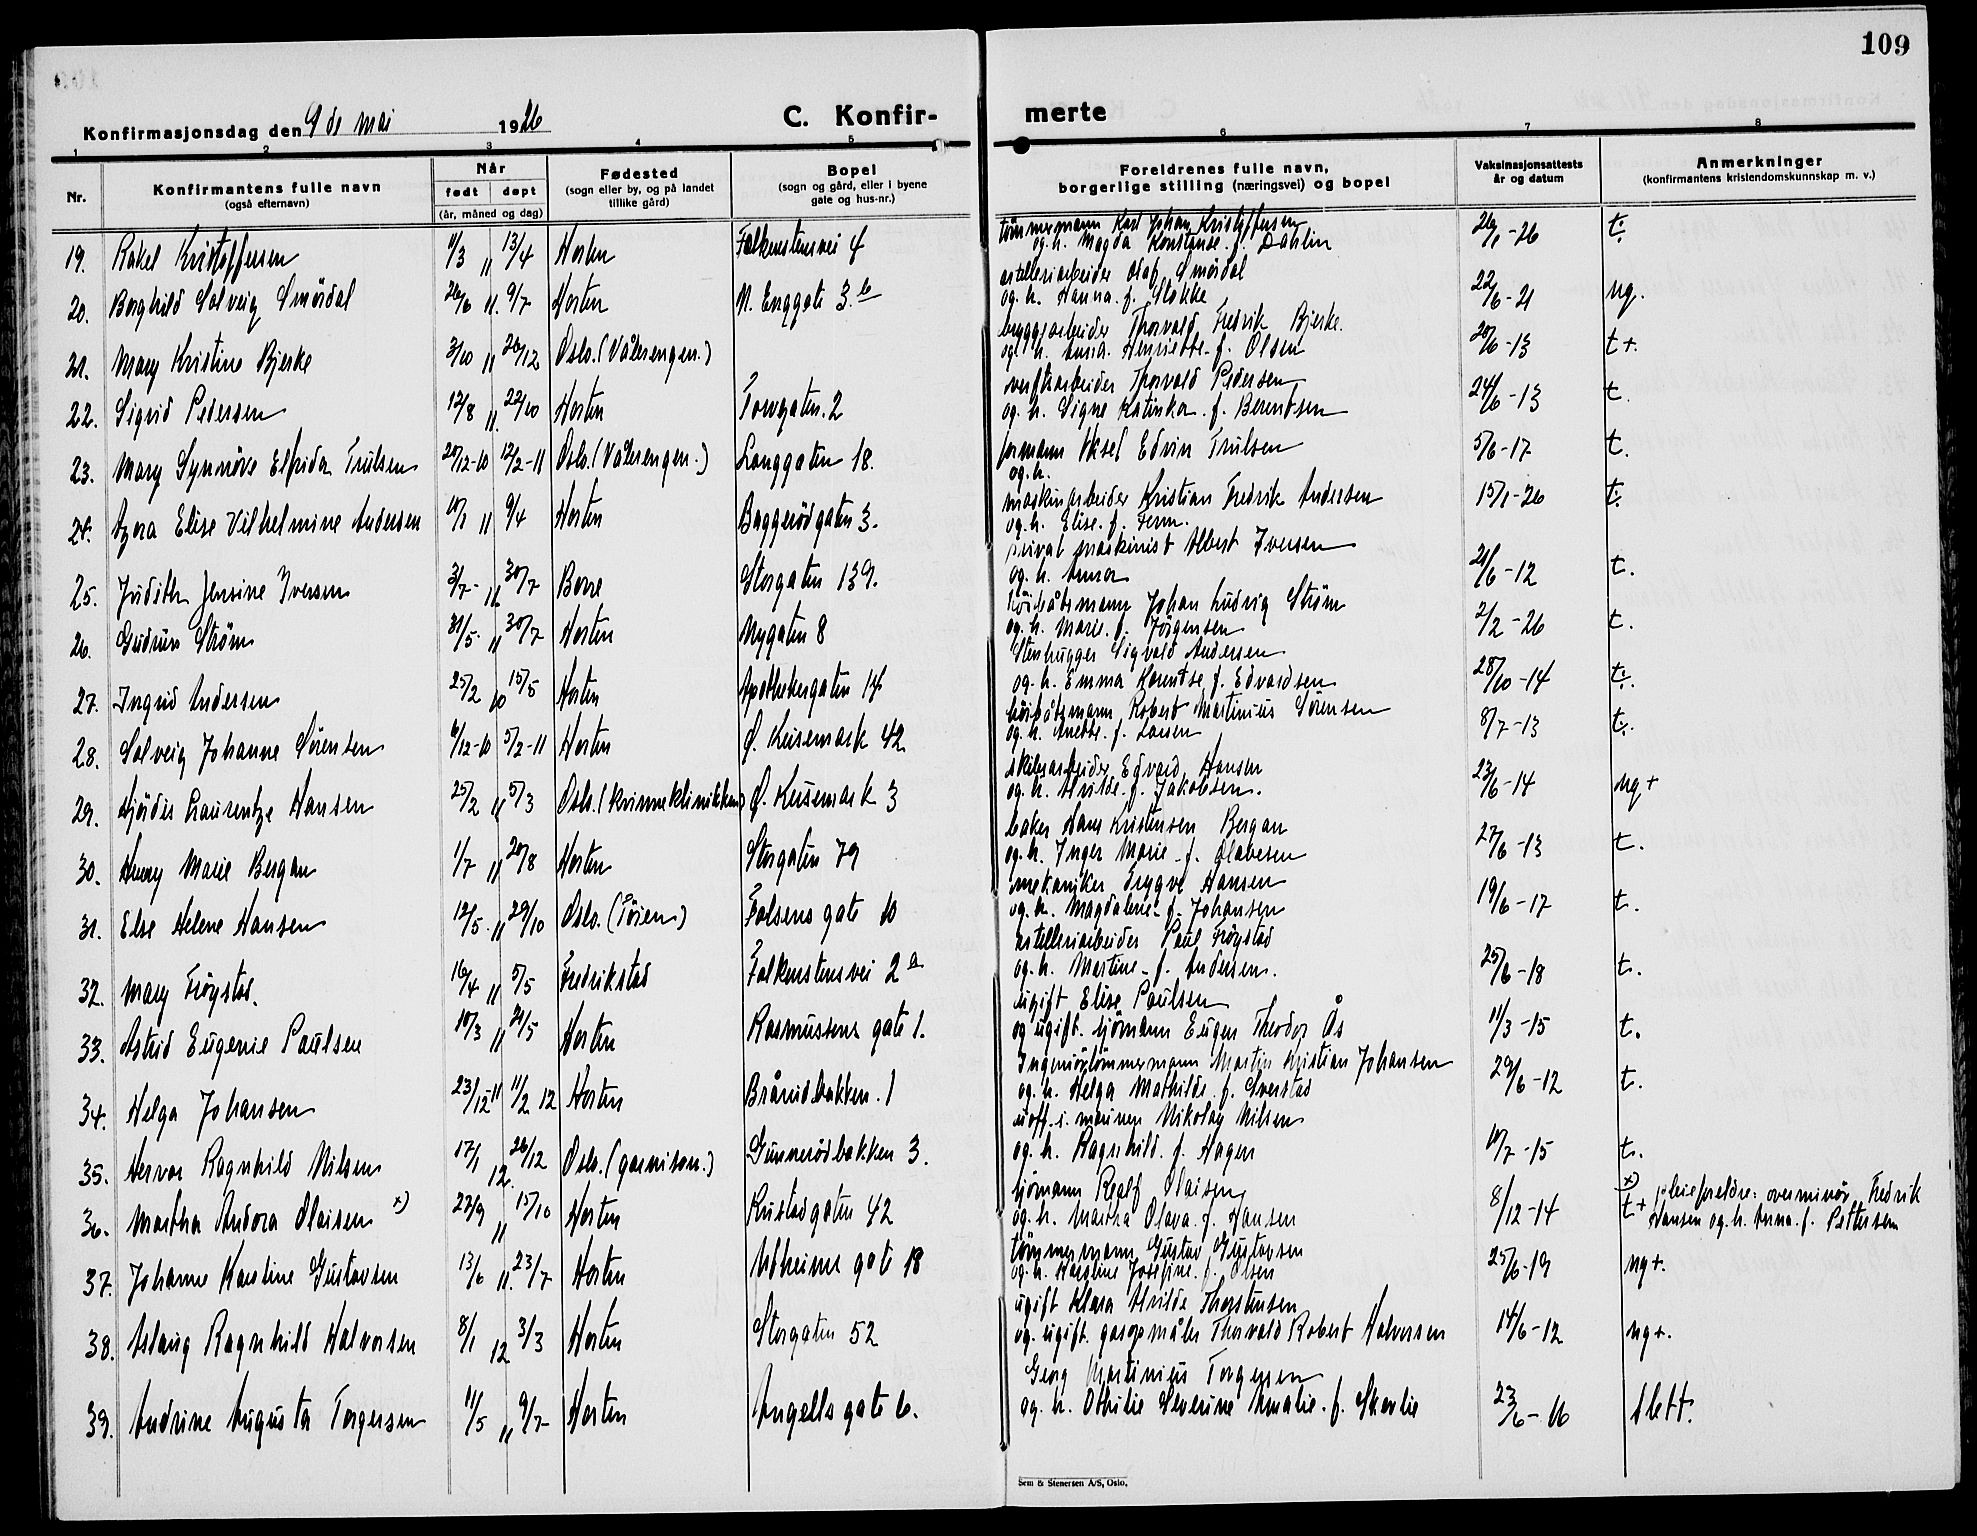 109
Konfirmasjonsdag den 9 de mai 1926
C. Konfir-
merte
1 2 3 4 5 6 7 8
Nr.
Konfirmantens fulle navn
(også efternavn)
Når
født døpt
(år, måned og dag)
Fødested
(sogn eller by, og på landet
tillike gård)
Bopel
(sogn og gård, eller i byene
gate og hus-nr.)
Foreldrenes fulle navn,
borgerlige stilling (næringsvei) og bopel
Vaksinasjonsattests
år og datum
Anmerkninger
(konfirmantens kristendomskunnskap m. v.)
tömmermann Karl Johan Kristoffersen
19. Rakel Kristoffersen 11/3 11 13/4 Horten Falkenstensvei 4 og h. Magda Konstanse f. Dahlin 26/1-26 t.
artilleriarbeider Olaf Smördal
20. Borghild Solveig Smördal 26/6 11. 9/7 Horten N. Enggate 3.b og h. Hanna f. Stokke 22/6-21 ng.
bryggearbeider Thorvald Fredrik Bjerke.
21. Mary Kristine Bjerke 3/10 11 26/12 Oslo. (Vålerengen.) og h. Anna Henriette f. Olsen 20/6-13 t+.
verftsarbeider Thorvald Pedersen
22. Sigrid Pedersen 12/8 11. 22/10 Horten Torvgaten. 2 og. h. Signe Katinka f. Berentsen 24/6-13 t.
formann Aksel Edvin Trulsen
23. Mary Synnöve Elfrida Trulsen 20/12-10 12/2-11 Oslo. (Vålerengen.) Langgaten 18. og. h. 5/6-17 t.
maskinarbeider Kristian Fredrik Andersen
24. Azora Elise Vilhelmine Andersen 10/1 11 9/4 Horten Baggerödgaten 3. og. h. Elise. f. Ferm. 15/1-26 t.
privat maskinist Albert Iversen
25. Judith Jensine Iversen 3/7- 11 30/7 Borre Storgaten 139. og. h. Anna 21/6-12 t.
höibåtsmann Johan Ludvig Ström
26. Gudrun Ström 31/5. 11 30/7 Horten Nygaten 8 og. h. Marie. f. Jörgensen 2/2-26 t.
Stenhugger Sigvald Andersen
27. Ingrid Andersen 25/2 10 15/5 Horten Apothekergaten 14 og. h. Emma Laurentse f. Edvardsen 28/10-14 t.
höibåtsmann Robert Martinius Sörensen
28. Solveig Johanne Sörensen 6/12-10 5/2-11 Horten Ø. Keisemark 42 og. h. Anette. f. Larsen 8/7-13 t.
Edvard Hansen
29. Hjördis Laurentze Hansen 25/2 11 5/3 Oslo. (kvinneklinikken) Ø. Keisemark 3 og. h. Alvilde. f. Jakobsen. 23/6-14 ng+
baker Hans Kristensen Bergan
30. Henny Marie Bergan 1/7 11 20/8 Horten Storgaten 79 og. h. Inger Marie f. Olavesen 27/6-13 t.
mekaniker Trygve Hansen
31. Else Helene Hansen 12/5. 11 29/10 Oslo. (Töien) Falsens gate 10 og. h. Magdalene f. Johansen 19/6-17 t.
artilleriarbeider Paul Fröystad
32. Mary Fröystad. 16/4 11 5/5 Fredrikstad Falkenstensvei 2 a og. h. Martine f. Andersen. 25/6-18 t.
ugift Elise Paulsen
33. Astrid Eugenie Paulsen 10/3 11 21/5 Horten Rasmussens gate 1. og ugift. sjömann Eugen Theodor Ås 11/3-15 t.
Ingeniörtömmermann Martin Kristian Johansen
34. Helga Johansen 23/12-11 11/2 12 Horten Bråridbakken. 1 og. h. Helga Mathilde. f. Sverstad 29/6-12 t.
uoff. i. marinen Nikolay Nilsen
35. Hervor Ragnhild Nilsen 17/1 12. 26/12 Oslo. (garnison.) Gunnerödbakken 3. og. h. Ragnhild. f. Hagen 10/7-15 t.
sjömann Realf Olaisen x) pleieforeldre: overminör Fredrik
36. Martha Andora Olaisen x) 22/9 11 15/10 Horten Rustadgaten 42 og. h. Martha Olava f. Hansen 8/12-14 t+ Hansen og. h. Anna. f. Pettersen
tömmermann Gustav Gustavsen
37. Johanne Karoline Gustavsen 13/6 11. 23/7 Horten Alfheims gate 18 og. h. Karoline Josefine. f. Olsen 25/6-19 ng+.
ugift Klara Alvilde Thorstensen
38. Aslaug Ragnhild Halvorsen 8/1 12 3/3 Horten Storgaten 52 og. ugift. gasopmåler Thorvald Robert Halvorsen 14/6-12 ng+.
Georg Martinius Torgersen
39. Andrine Augusta Torgersen 11/5 11 9/7 Horten Angells gate 6. og. h. Othilie Severine Amalie. f. Skovlie 23/6-16 slett.
Sem & Stenersen A/S, Oslo.